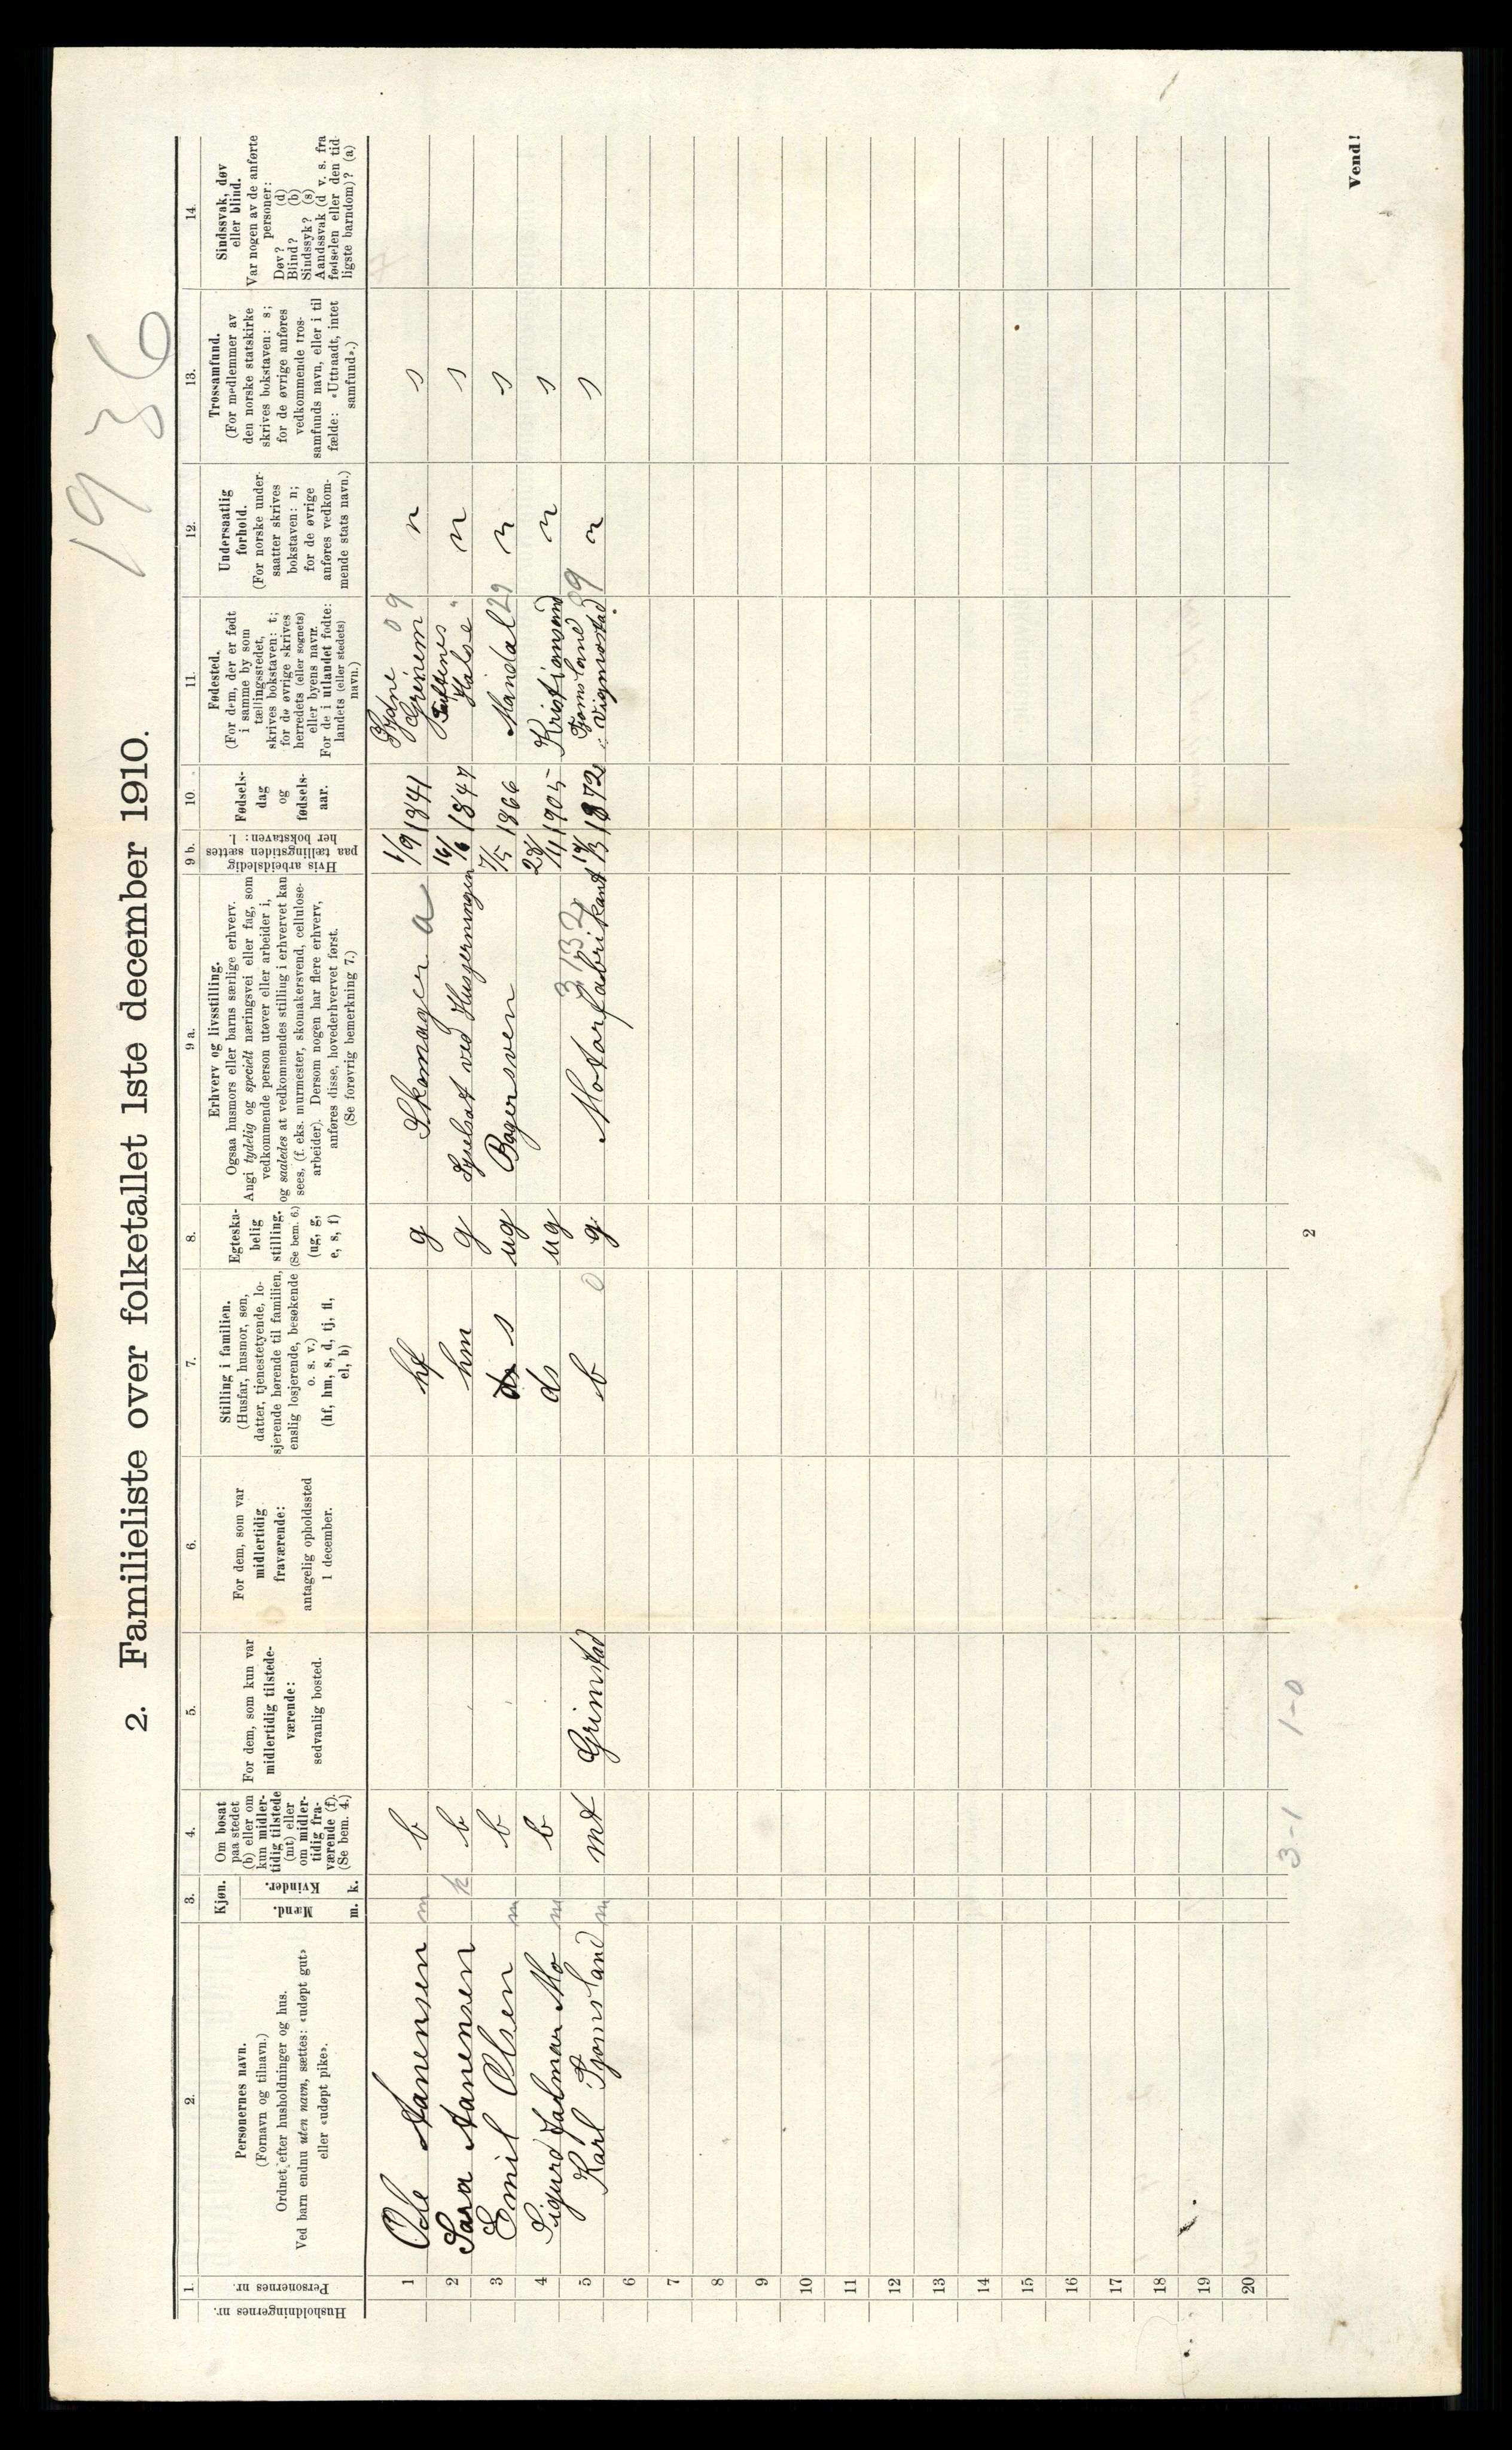 19 36
2. Familieliste over folketallet 1ste december 1910.
Husholdningernes nr.
1.
Personernes nr.
2.
Personernes navn.
(Fornavn og tilnavn.)
Ordnet efter husholdninger og hus.
Ved barn endnu uten navn, sættes: «udøpt gut»
eller «udøpt pike».
3.
Kjøn.
Mænd.
Kvinder.
m. k.
4.
Om bosat
paa stedet
(b) eller om
kun midler-
tidig tilstede
(mt) eller
om midler-
tidig fra-
værende (f).
(Se bem. 4.)
5.
For dem, som kun var
midlertidig tilstede-
værende:
sedvanlig bosted.
6.
For dem, som var
midlertidig
fraværende:
antagelig opholdssted
1 december.
7.
Stilling i familien.
(Husfar, husmor, søn,
datter, tjenestetyende, lo-
sjerende hørende til familien,
enslig losjerende, besøkende
o. s. v.)
(hf, hm, s, d, tj, fl,
el, b)
8.
Egteska-
belig
stilling.
(Se bem. 6.)
(ug, g,
e, s, f)
9 a.
Erhverv og livsstilling.
Ogsaa husmors eller barns særlige erhverv.
Angi tydelig og specielt næringsvei eller fag, som
vedkommende person utøver eller arbeider i,
og saaledes at vedkommendes stilling i erhvervet kan
sees, (f. eks. murmester, skomakersvend, cellulose-
arbeider). Dersom nogen har flere erhverv,
anføres disse, hovederhvervet først.
(Se forøvrig bemerkning 7.)
9 b.
Hvis arbeidsledig
paa tællingstiden sættes
her bokstaven: l.
10.
Fødsels-
dag
og
fødsels-
aar.
11.
Fødested.
(For dem, der er født
i samme by som
tællingsstedet,
skrives bokstaven: t;
for de øvrige skrives
herredets (eller sognets)
eller byens navn.
For de i utlandet fødte:
landets (eller stedets)
navn.)
12.
Undersaatlig
forhold.
(For norske under-
saatter skrives
bokstaven: n;
for de øvrige
anføres vedkom-
mende stats navn.)
13.
Trossamfund.
(For medlemmer av
den norske statskirke
skrives bokstaven: s;
for de øvrige anføres
vedkommende tros-
samfunds navn, eller i til
fælde: «Uttraadt, intet
samfund».)
14.
Sindssvak, døv
eller blind.
Var nogen av de anførte
personer:
Døv? (d)
Blind? (b)
Sindssyk? (s)
Aandssvak (d v. s. fra
fødselen eller den tid-
ligste barndom)? (a)
1 Ole Tanensen m b hf g Skomager a 1/9 1841 Grenem 09 n s
2 Sara Tanensen k b hm g Sysselsat ved Husgjerningen 16/6 1847 Halse " n s
3 Emil Olsen m b s ug Bagersven 7/5 1866 Mandal 29 n s
4 Sigurd Mo m b ds ug 28/11 1905 Kristiansand n s
5 Karl Tjomsland m mt Grimstad b 0 g Motorfabrikant 3132 1872 Tjomsland Vigmostad 09 n s
6
7
8
9
10
11
12
13
14
15
16
17
18
19
20
3-1 1-0
2
Vend!